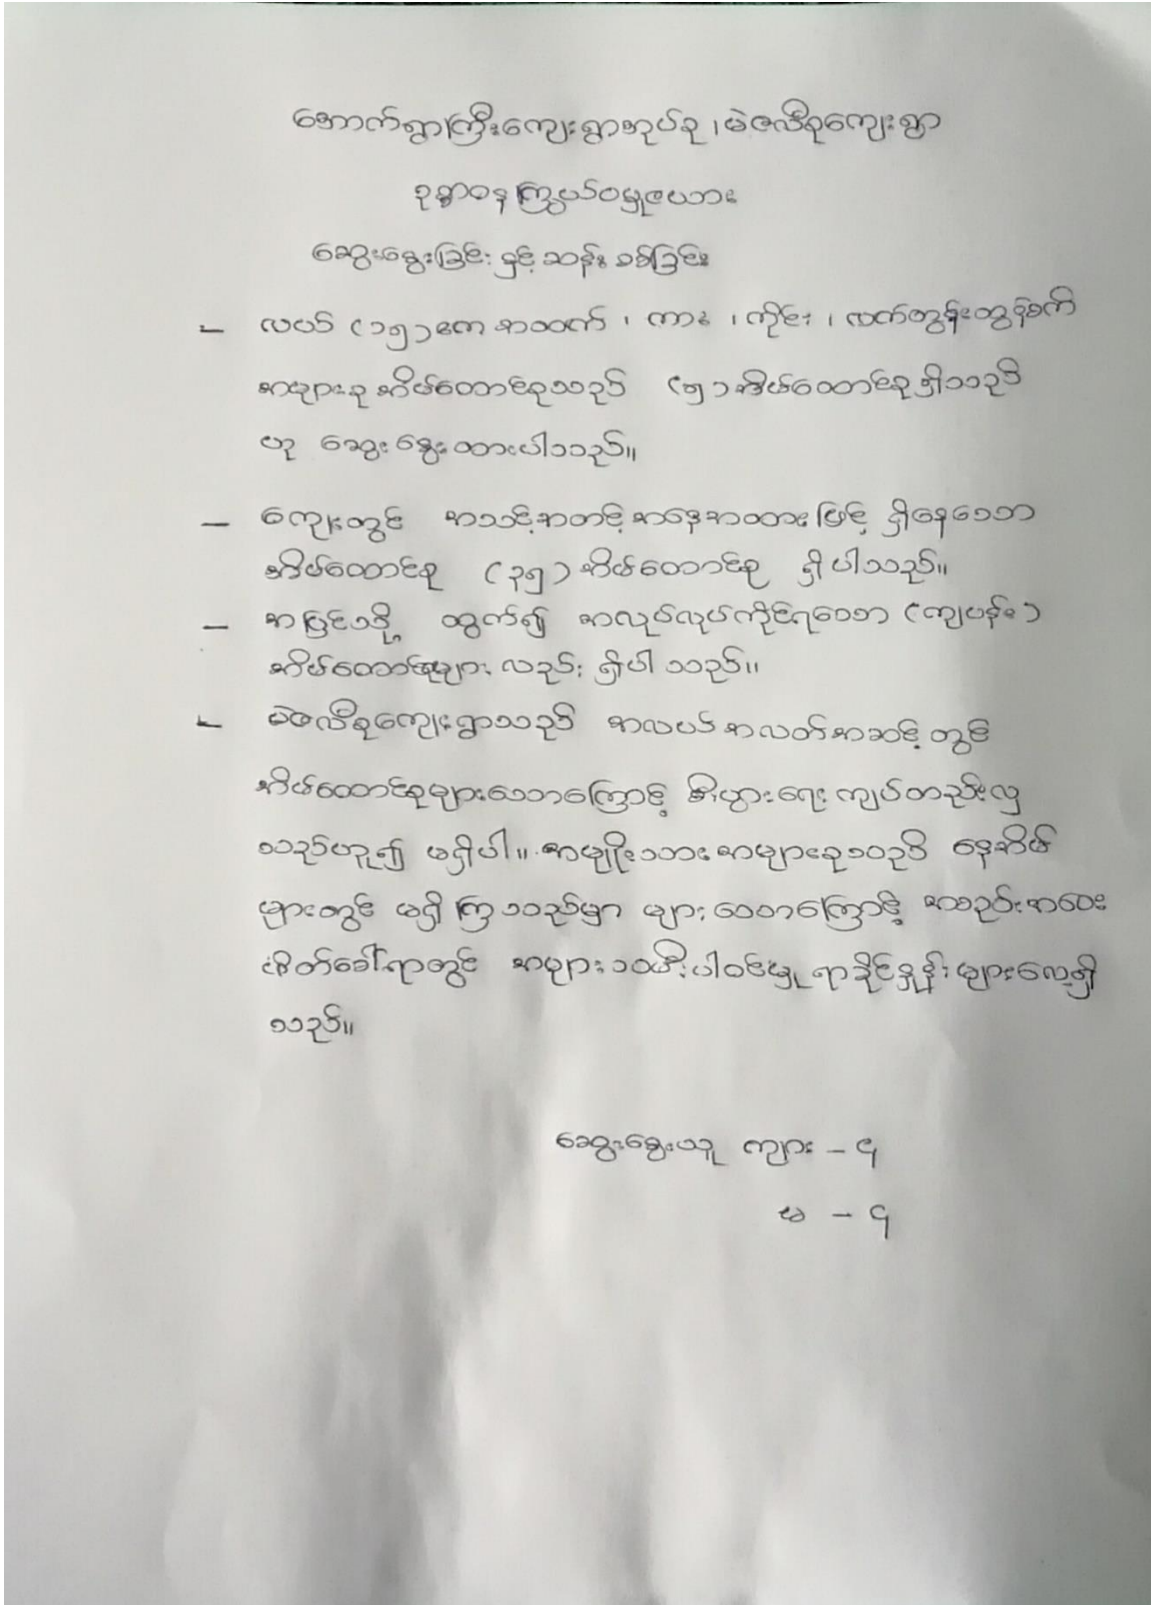 အောက်ရွာကြီးကျေးရွာအုပ်စု ၊ မဲဇလီစုကျေးရွာ
ဥစ္စာဓန ကြွယ်ဝမှုဇယား
ဆွေးနွေးခြင်း နှင့် ဆန်းစစ်ခြင်း
– လယ် (၁၅) ဧက အထက် ၊ ကား ၊ ကိုင်း ၊ လက်တွန်းထွန်စက်
အများစု အိမ်ထောင်စုသည် (၅) အိမ်ထောင်စု ရှိသည်
ဟု ဆွေးနွေးထားပါသည်။
– ကျေးတွင် အသင့်အတင့် အနေအထားဖြင့် ရှိနေသော
အိမ်ထောင်စု (၃၅) အိမ်ထောင်စု ရှိပါသည်။
– အပြင်သို့ ထွက်၍ အလုပ်လုပ်ကိုင်ရသော (ကျပန်း)
အိမ်ထောင်စုများ လည်း ရှိပါသည်။
– မဲဇလီစုကျေးရွာသည် အလယ်အလတ်အဆင့်တွင်
အိမ်ထောင်စုများသောကြောင့် စီးပွားရေး ကျပ်တည်းလှ
သည်ဟူ၍ မရှိပါ။ အမျိုးသား အများစုသည် နေအိမ်
များတွင် မရှိကြသည်မှာ များသောကြောင့် အစည်းအဝေး
ဖိတ်ခေါ်ရာတွင် အမျိုးသမီး ပါဝင်မှု ရာခိုင်နှုန်း များလေ့ရှိ
သည်။
ဆွေးနွေးသူ ကျား – ၄
မ – ၄